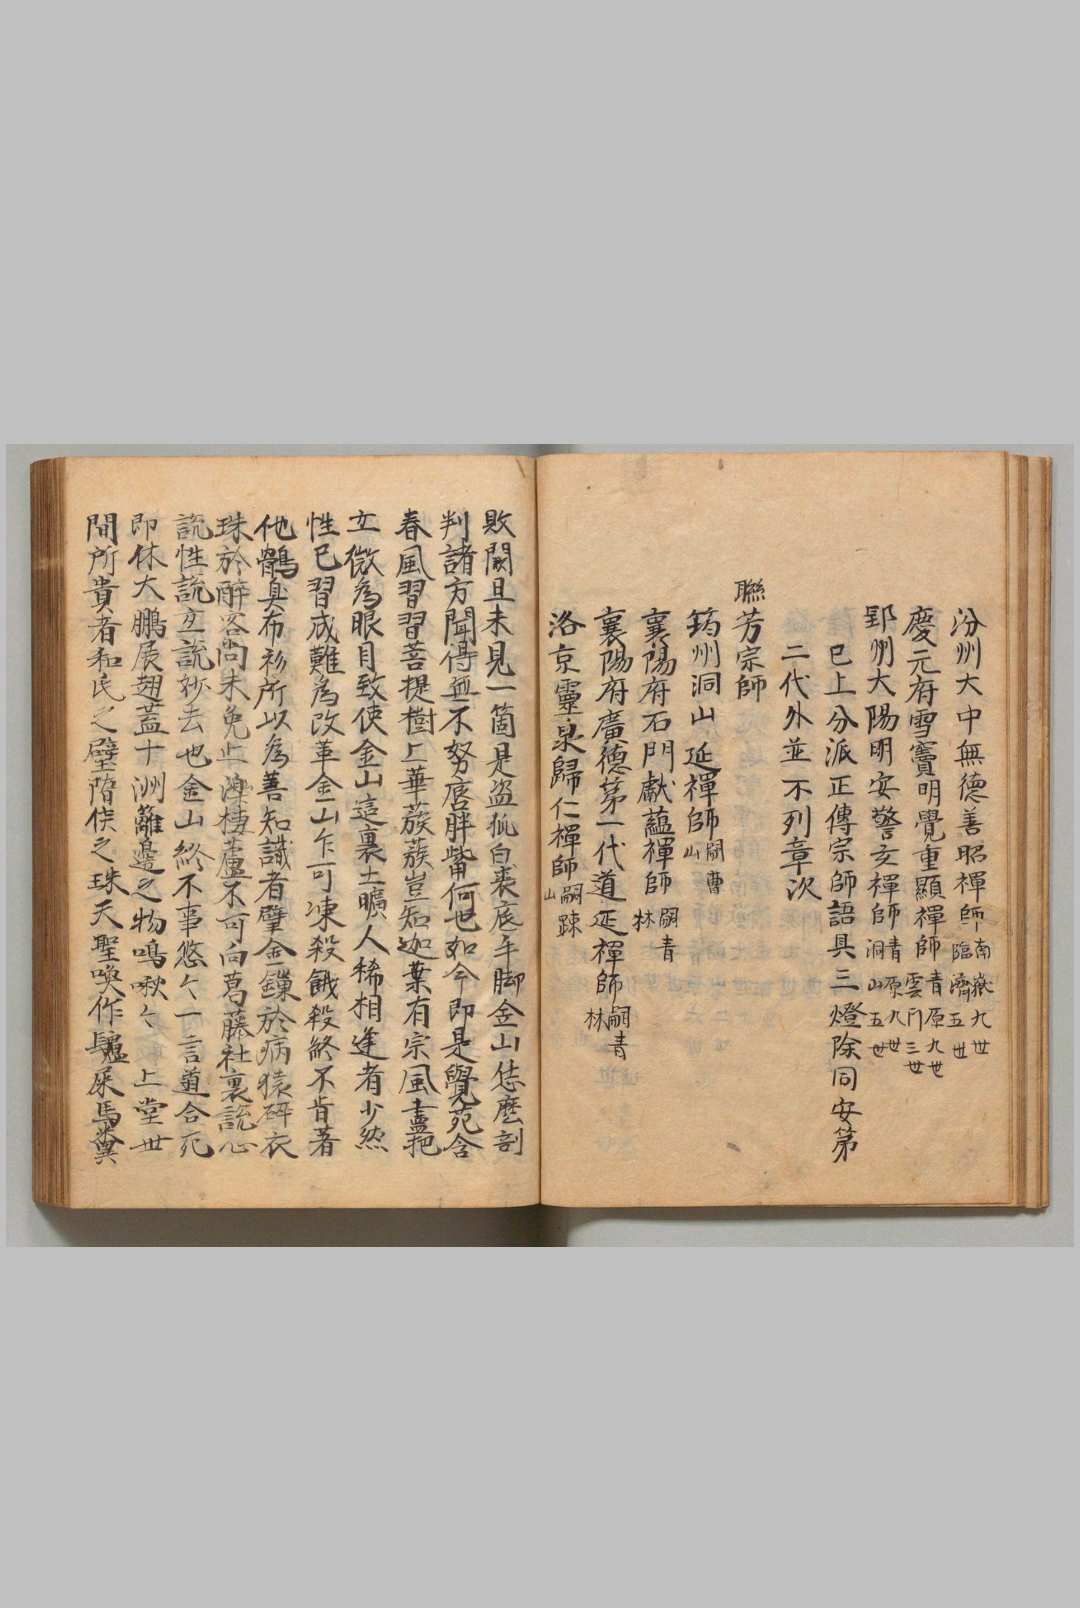 汾州大中無德善昭禪師南嶽九世臨濟五世
慶元府雪竇明覺重顯禪師青原九世雲门三世
郢州大陽明安警玄禪師青原九世洞山五世
已上分派正傳宗師語具三燈除同安第
二代外並不列章次
聯芳宗師
筠州洞山延禪師嗣曹山
襄陽府石門獻蘊禪師嗣青林
襄陽府廣德第一代道延禪師嗣青林
洛京靈泉歸仁禪師嗣踈山
敗闕且未見一箇是盗狐白裘底手脚金山恁麽剖
判諸方聞得無不努唇胖觜何也如今即是覺苑含
春風習習菩提樹上華蔟蔟豈知迦葉有宗風盡把
立微為眼目致使金山這裏土曠人稀相逢者少然
性已習成難為改革金山乍可凍殺餓殺終不肯著
他鶻臭布衫所以為善知識者擘金鏁於病猿碎衣
珠於醉客尚未免止濼棲蘆不可向葛藤社裏説心
説性説玄説妙去也金山終不事悠々一言道合死
即休大鵬展翅蓋十洲籬邊之物鳴啾々上堂世
間所貴者和氏之璧隋侯之珠天聖喚作驢屎馬糞